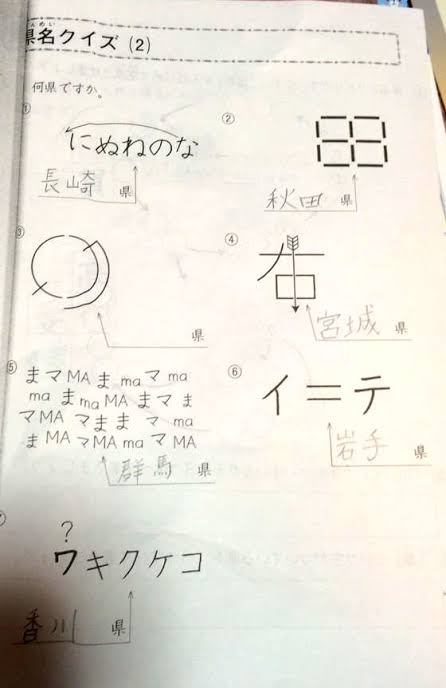 んめい
県名クイズ (2)
何県ですか。
① にぬねのな
長崎 県
②
秋田 県
③
県
④ 右
宮城 県
⑤ ま マ MA ま ma マ ma
ma ま ma MA ま マ ま
マ MA マ ま ま マ ma
ま MA マ MA ma マ MA
群馬 県
⑥ イ＝テ
岩手 県
?
ワキクケコ
香川 県